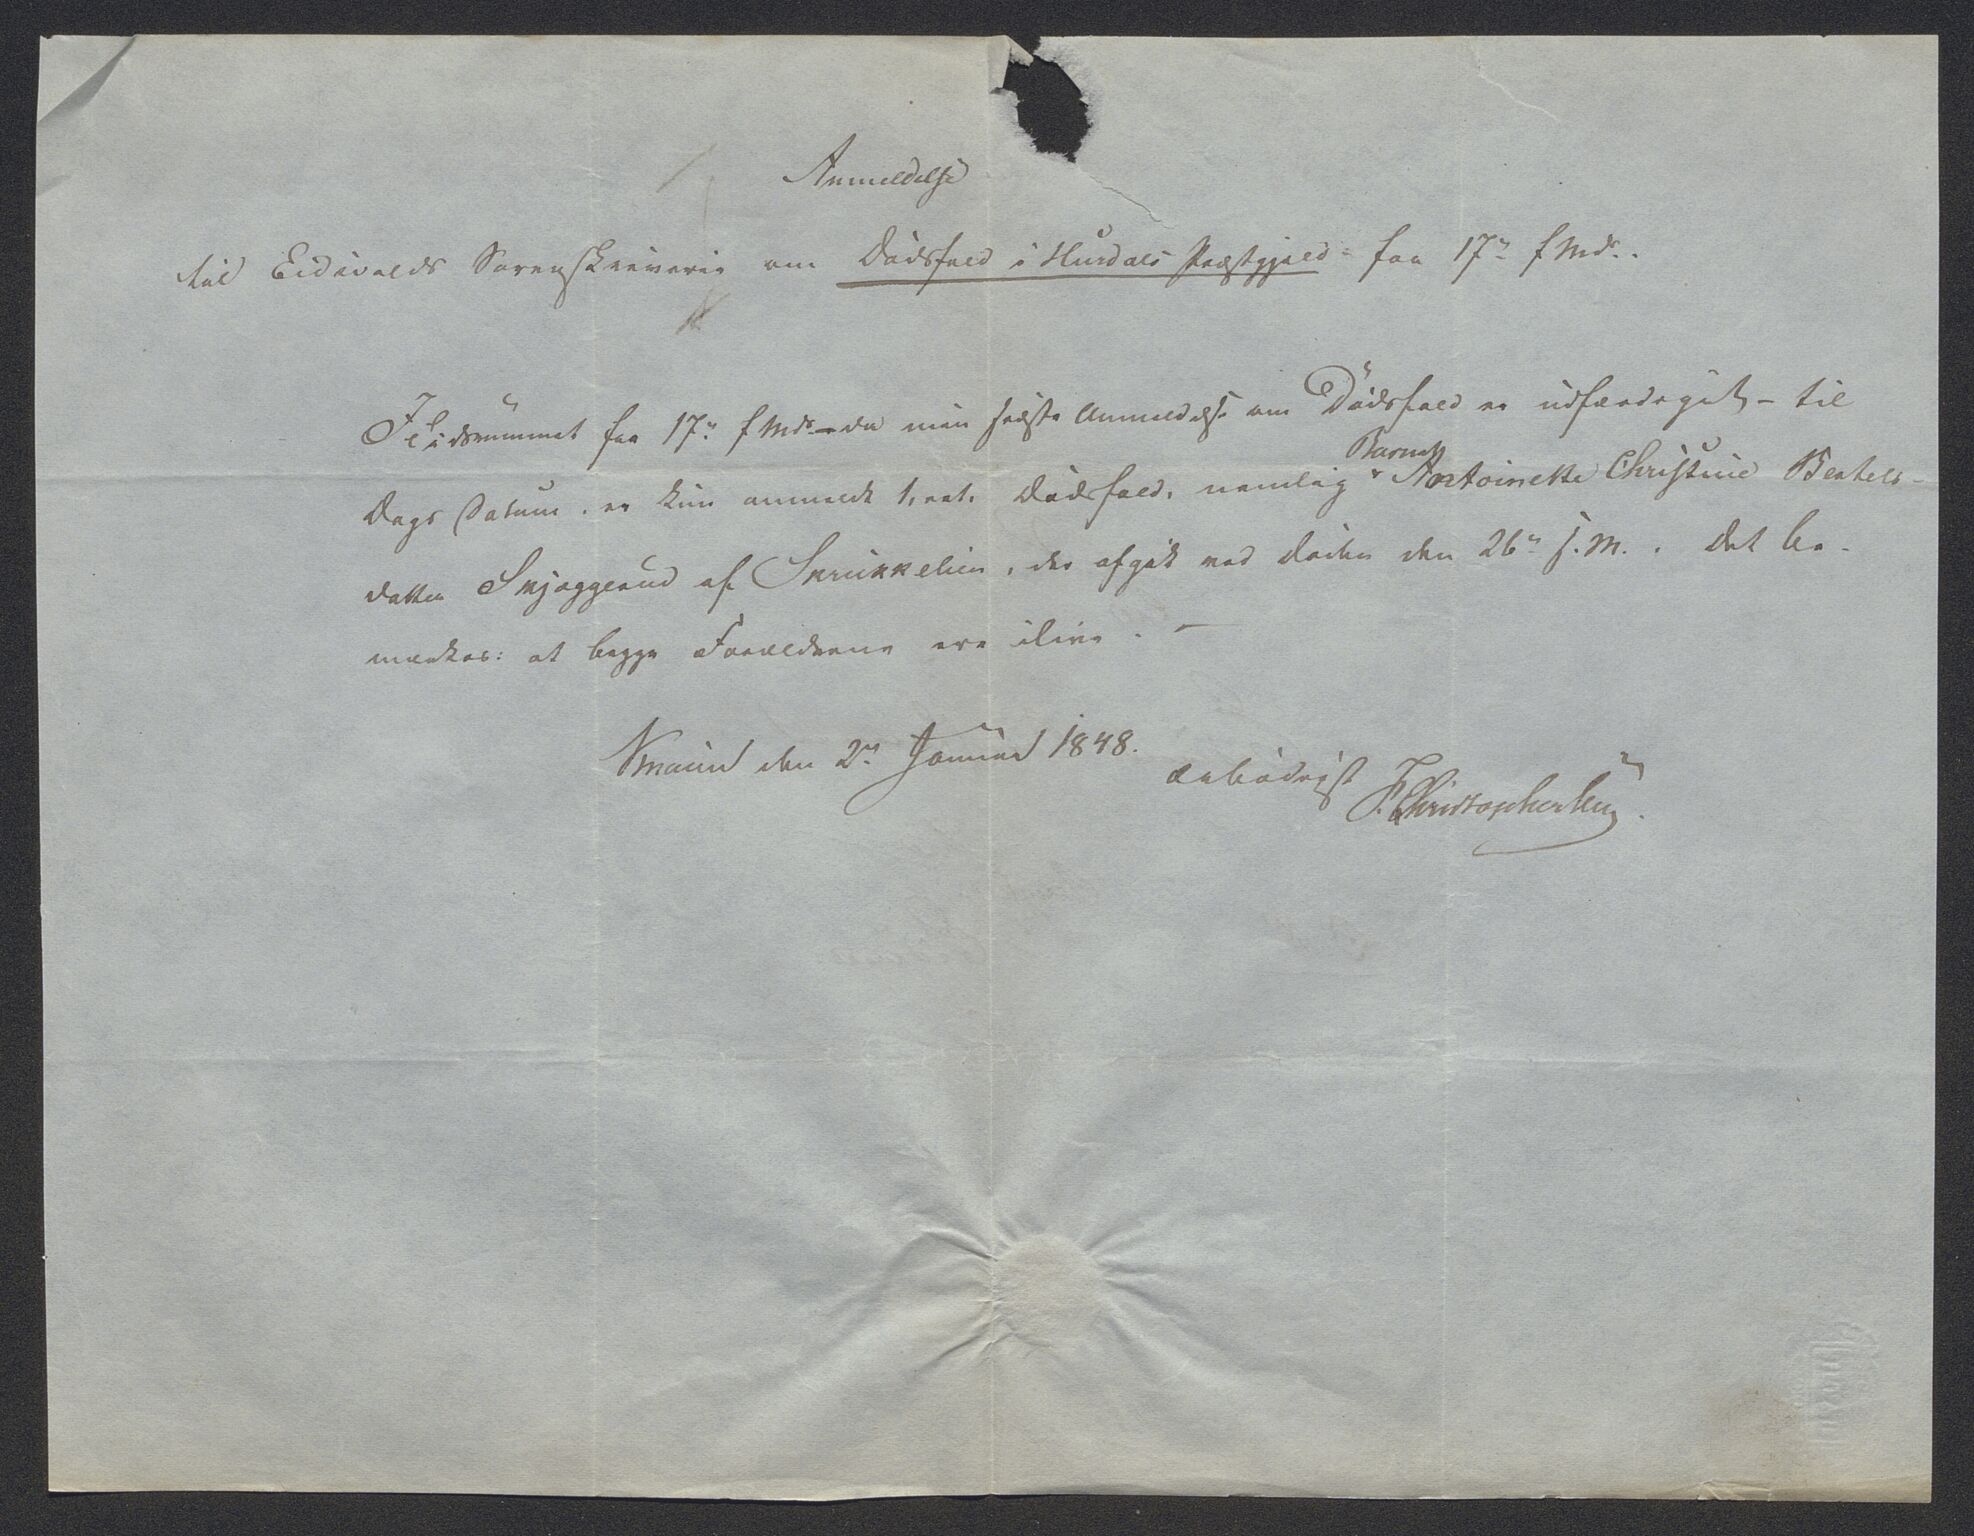 Anmeldelse
til Eidsvolds Sorenskriverie om Dødsfald i Hurdals Præstgjeld fra 17de f Mds.
I Tidsrummet fra 17de f Mds – da min sidste Anmeldelse om Dødsfald er udfærdiget – til
Dags Datum, er kun anmeldt 1, et, Dødsfald, nemlig Barnet Antoinette Christine Bertels-
datter Skjæggerud af Skrukkelien, der afgik ved Døden den 26de s. M. Det be-
mærkes: at begge Forældrene ere ilive. –
den 2den Januar 1848.
ærbødigst
Christophersen